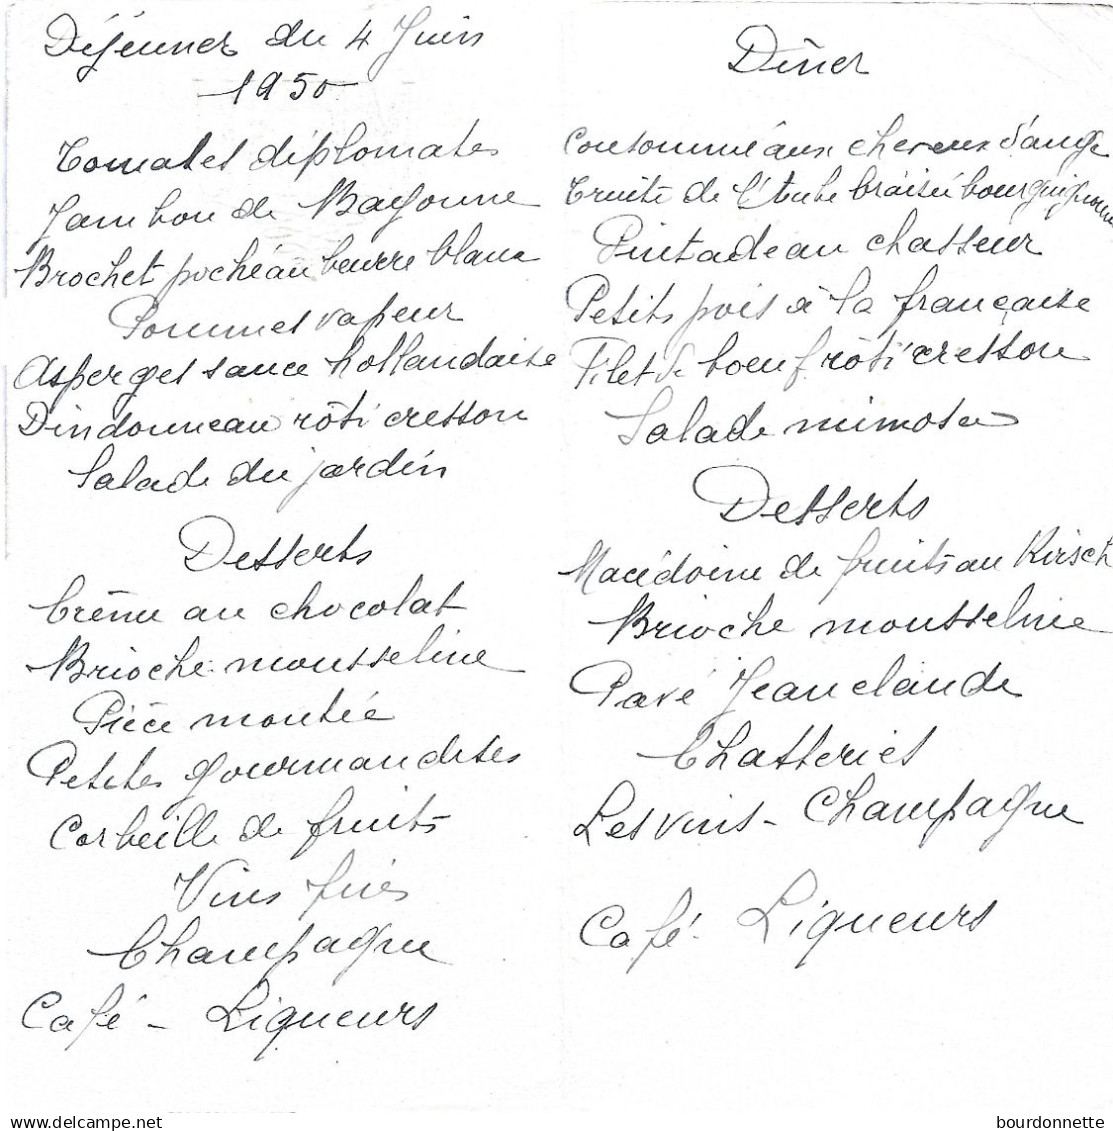 Déjeuner du 4 Juin
1950
Tomates diplomates
Jambon de Bayonne
Brochet poché au beurre blanc
Pommes vapeur
Asperges sauce hollandaise
Dindonneau rôti cresson
Salade du jardin
Desserts
Crème au chocolat
Brioche mousseline
Pièce montée
Petites gourmandises
Corbeille de fruits
Vins fins
Champagne
Café - Liqueurs
Dîner
Consommé aux cheveux d'ange
Truite de l'Aube braisée bourguignonne
Pintadeau chasseur
Petits pois à la française
Filet de boeuf rôti cresson
Salade mimosa
Desserts
Macédoine de fruits au Kirsch
Brioche mousseline
Pavé Jean claude
Chatteries
Les vins - Champagne
Café - Liqueurs
delcampe.net
bourdonnette